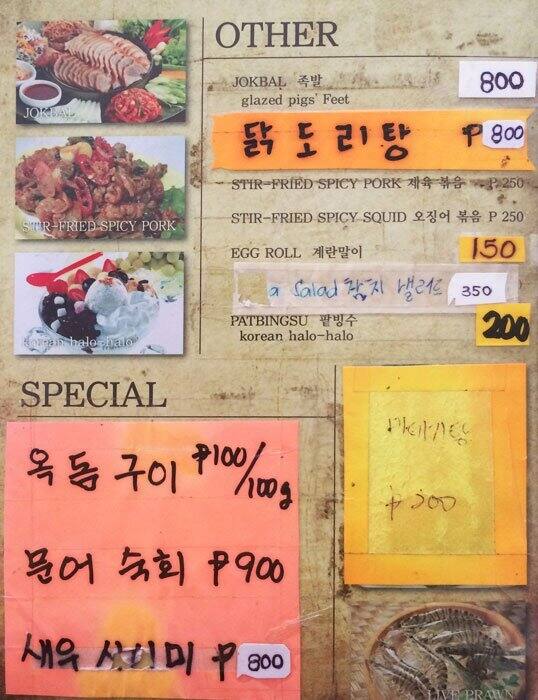 OTHER
JOKBAL 족발 800
glazed pigs' Feet
닭도리탕 ₱ 800
STIR-FRIED SPICY PORK 제육 볶음 P 250
STIR-FRIED SPICY SQUID 오징어 볶음 P 250
EGG ROLL 계란말이 150
a Salad 참치 샐러드 350
PATBINGSU 팥빙수 200
korean halo-halo
JOKBAL
STIR-FRIED SPICY PORK
korean halo-halo
SPECIAL
옥돔 구이 ₱100/100g
문어 숙회 ₱900
새우 사시미 ₱ 800
₱300
LIVE PRAWN